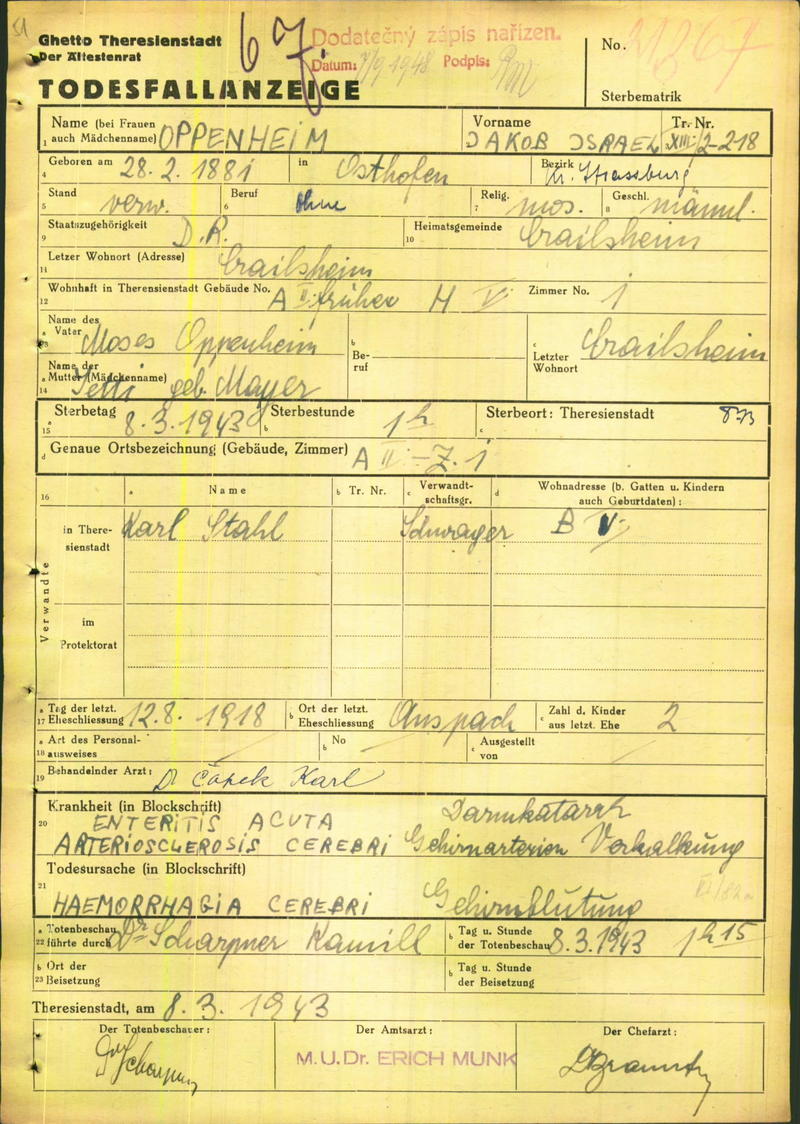 51
Ghetto Theresienstadt
Der Ältestenrat
67
Dodatečný zápis nařízen.
Datum: 7/9 1948 Podpis:
No. 21367
TODESFALLANZEIGE
Sterbematrik
Name (bei Frauen auch Mädchenname) OPPENHEIM Vorname JAKOB ISRAEL Tr. Nr. XIII/2-218
1
Geboren am 28. 2. 1881 in Osthofen Bezirk Kr. Strassburg
4
Stand verw. Beruf ohne Relig. mos. Geschl. männl.
5 6 7 8
Staatszugehörigkeit D. R. Heimatsgemeinde Crailsheim
9 10
Letzer Wohnort (Adresse) Crailsheim
11
Wohnhaft in Theresienstadt Gebäude No. A II früher H V Zimmer No. 1
12
Name des Vater Moses Oppenheim Beruf Letzter Wohnort Crailsheim
Name der Mutter (Mädchenname) Jetti geb. Mayer
14
Sterbetag 8. 3. 1943 Sterbestunde 1h Sterbeort: Theresienstadt 873
15
Genaue Ortsbezeichnung (Gebäude, Zimmer) A II - Z. 1
16 a Name b Tr. Nr. c Verwandt-schaftsgr. d Wohnadresse (b. Gatten u. Kindern auch Geburtdaten):
Verwandte
in There-sienstadt Karl Stahl Schwager B V
im Protektorat
17 Tag der letzt. Eheschliessung 12. 8. 1918 Ort der letzt. Eheschliessung Anspach Zahl d. Kinder aus letzt. Ehe 2
18 Art des Personal-ausweises No Ausgestellt von
19 Behandelnder Arzt: Dr Čapek Karl
Krankheit (in Blockschrift) Darmkatarrh
20 ENTERITIS ACUTA
ARTERIOSCLEROSIS CEREBRI Gehirnarterien Verkalkung
Todesursache (in Blockschrift)
21
HAEMORRHAGIA CEREBRI Gehirnblutung
22 Totenbeschau führte durch Dr Scharpner Kamill Tag u. Stunde der Totenbeschau 8. 3. 1943 1h 15
23 Ort der Beisetzung Tag u. Stunde der Beisetzung
Theresienstadt, am 8. 3. 1943
Der Totenbeschauer: Der Amtsarzt: Der Chefarzt:
M.U.Dr. ERICH MUNK